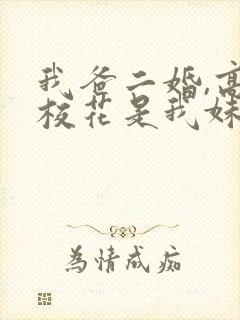 我爸二婚,高
校花是我妹
为情成痴